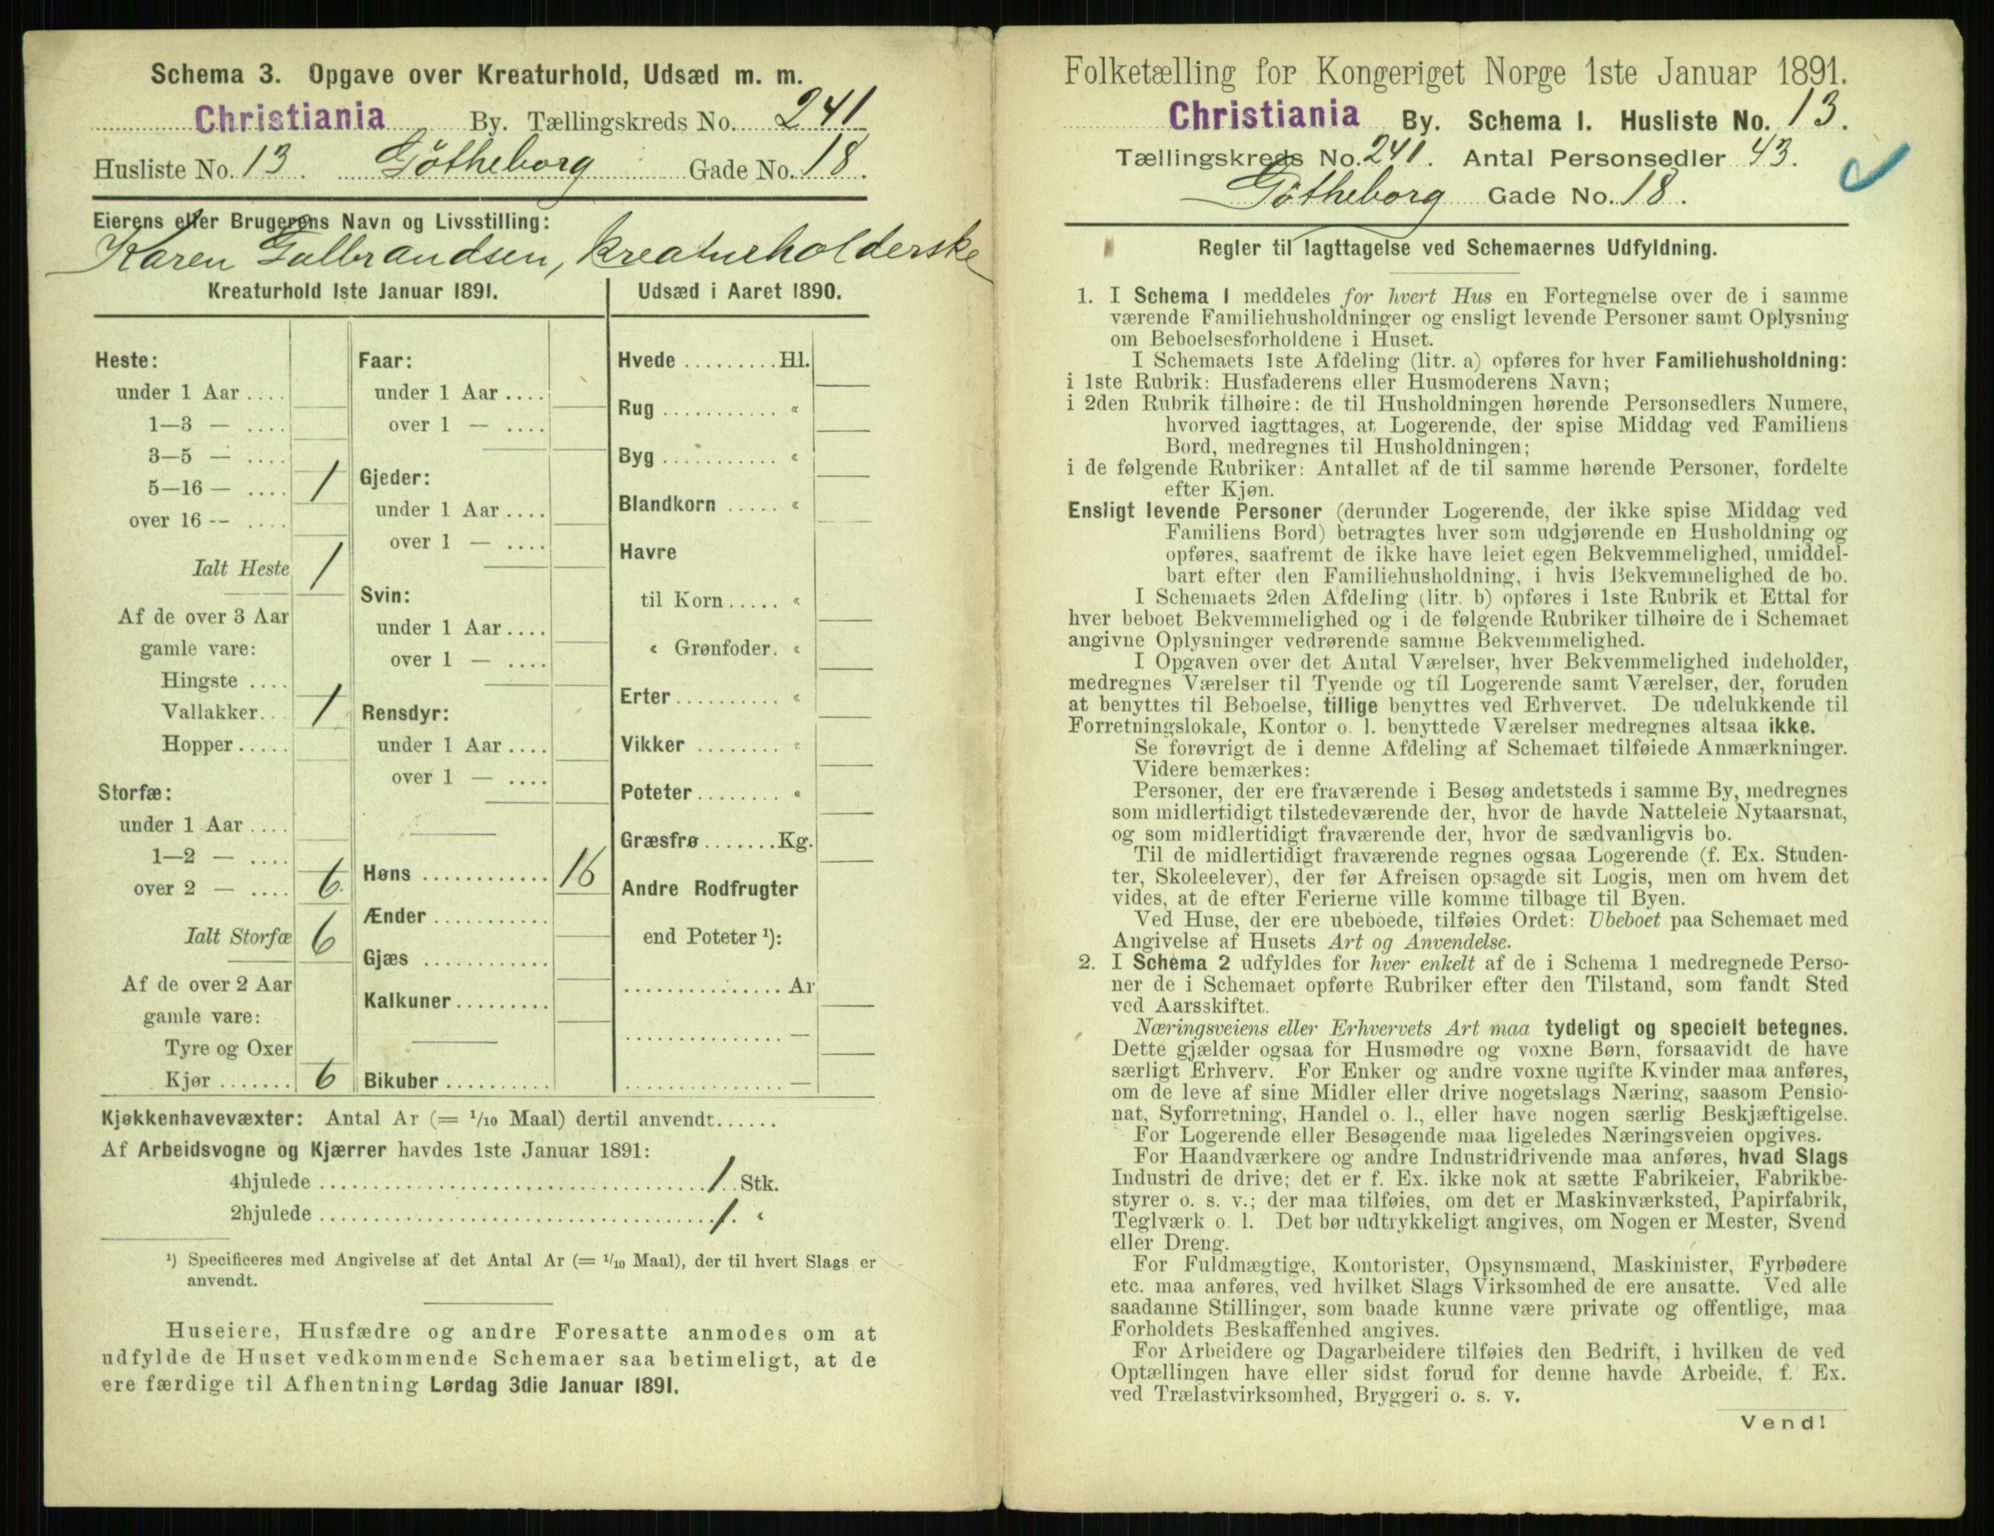 Schema 3. Opgave over Kreaturhold, Udsæd m. m.
Christiania By. Tællingskreds No. 241
Husliste No. 13. Götheborg Gade No. 18.
Eierens eller Brugerens Navn og Livsstilling:
Karen Gulbrandsen, kreaturholderske
Kreaturhold 1ste Januar 1891.
Heste:
under 1 Aar ....
1—3 — ....
3—5 — ....
5—16 — .... 1
over 16 -- ....
Ialt Heste 1
Af de over 3 Aar
gamle vare:
Hingste ....
Vallakker... 1
Hopper.....
Storfæ:
under 1 Aar ....
1—2 — ....
over 2 — .... 6.
Ialt Storfæ 6
Af de over 2 Aar
gamle vare:
Tyre og Oxer
Kjør ....... 6
Faar:
under 1 Aar ....
over 1 — ....
Gjeder:
under 1 Aar ....
over 1 — ....
Svin:
under 1 Aar ....
over 1 — ....
Rensdyr:
under 1 Aar ....
over 1 — ....
Høns ............ 16
Ænder ...........
Gjæs ............
Kalkuner.........
Bikuber ..........
Udsæd i Aaret 1890.
Hvede ......... Hl.
Rug ........... «
Byg ........... «
Blandkorn ..... «
Havre
til Korn..... «
« Grønfoder. «
Erter .......... «
Vikker ........ «
Poteter........ «
Græsfrø ....... Kg.
Andre Rodfrugter
end Poteter ¹):
............... Ar
............... —
............... —
Kjøkkenhavevæxter: Antal Ar (= 1/10 Maal) dertil anvendt......
Af Arbeidsvogne og Kjærrer havdes 1ste Januar 1891:
4hjulede ........................................ 1 Stk.
2hjulede ........................................ 1. «
¹) Specificeres med Angivelse af det Antal Ar (= 1/10 Maal), der til hvert Slags er
anvendt.
Huseiere, Husfædre og andre Foresatte anmodes om at
udfylde de Huset vedkommende Schemaer saa betimeligt, at de
ere færdige til Afhentning Lørdag 3die Januar 1891.
Folketælling for Kongeriget Norge 1ste Januar 1891.
Christiania By. Schema I. Husliste No. 13.
Tællingskreds No. 241. Antal Personsedler 43.
Götheborg Gade No. 18.
Regler til Iagttagelse ved Schemaernes Udfyldning.
1. I Schema 1 meddeles for hvert Hus en Fortegnelse over de i samme
værende Familiehusholdninger og ensligt levende Personer samt Oplysning
om Beboelsesforholdene i Huset.
I Schemaets 1ste Afdeling (litr. a) opføres for hver Familiehusholdning:
i 1ste Rubrik: Husfaderens eller Husmoderens Navn;
i 2den Rubrik tilhøire: de til Husholdningen hørende Personsedlers Numere,
hvorved iagttages, at Logerende, der spise Middag ved Familiens
Bord, medregnes til Husholdningen;
i de følgende Rubriker: Antallet af de til samme hørende Personer, fordelte
efter Kjøn.
Ensligt levende Personer (derunder Logerende, der ikke spise Middag ved
Familiens Bord) betragtes hver som udgjørende en Husholdning og
opføres, saafremt de ikke have leiet egen Bekvemmelighed, umiddel-
bart efter den Familiehusholdning, i hvis Bekvemmelighed de bo.
I Schemaets 2den Afdeling (litr. b) opføres i 1ste Rubrik et Ettal for
hver beboet Bekvemmelighed og i de følgende Rubriker tilhøire de i Schemaet
angivne Oplysninger vedrørende samme Bekvemmelighed.
I Opgaven over det Antal Værelser, hver Bekvemmelighed indeholder,
medregnes Værelser til Tyende og til Logerende samt Værelser, der, foruden
at benyttes til Beboelse, tillige benyttes ved Erhvervet. De udelukkende til
Forretningslokale, Kontor o. l. benyttede Værelser medregnes altsaa ikke.
Se forøvrigt de i denne Afdeling af Schemaet tilføiede Anmærkninger.
Videre bemærkes:
Personer, der ere fraværende i Besøg andetsteds i samme By, medregnes
som midlertidigt tilstedeværende der, hvor de havde Natteleie Nytaarsnat,
og som midlertidigt fraværende der, hvor de sædvanligvis bo.
Til de midlertidigt fraværende regnes ogsaa Logerende (f. Ex. Studen-
ter, Skoleelever), der før Afreisen opsagde sit Logis, men om hvem det
vides, at de efter Ferierne ville komme tilbage til Byen.
Ved Huse, der ere ubeboede, tilføies Ordet: Ubeboet paa Schemaet med
Angivelse af Husets Art og Anvendelse.
2. I Schema 2 udfyldes for hver enkelt af de i Schema 1 medregnede Perso-
ner de i Schemaet opførte Rubriker efter den Tilstand, som fandt Sted
ved Aarsskiftet.
Næringsveiens eller Erhvervets Art maa tydeligt og specielt betegnes.
Dette gjælder ogsaa for Husmødre og voxne Børn, forsaavidt de have
særligt Erhverv. For Enker og andre voxne ugifte Kvinder maa anføres,
om de leve af sine Midler eller drive nogetslags Næring, saasom Pensio-
nat, Syforretning, Handel o. l., eller have nogen særlig Beskjæftigelse.
For Logerende eller Besøgende maa ligeledes Næringsveien opgives.
For Haandværkere og andre Industridrivende maa anføres, hvad Slags
Industri de drive; det er f. Ex. ikke nok at sætte Fabrikeier, Fabrikbe-
styrer o. s. v.; der maa tilføies, om det er Maskinværksted, Papirfabrik,
Teglværk o. l. Det bør udtrykkeligt angives, om Nogen er Mester, Svend
eller Dreng.
For Fuldmægtige, Kontorister, Opsynsmænd, Maskinister, Fyrbødere
etc. maa anføres, ved hvilket Slags Virksomhed de ere ansatte. Ved alle
saadanne Stillinger, som baade kunne være private og offentlige, maa
Forholdets Beskaffenhed angives.
For Arbeidere og Dagarbeidere tilføies den Bedrift, i hvilken de ved
Optællingen have eller sidst forud for denne havde Arbeide, f. Ex.
ved Trælastvirksomhed, Bryggeri o. s. v.
Vend!